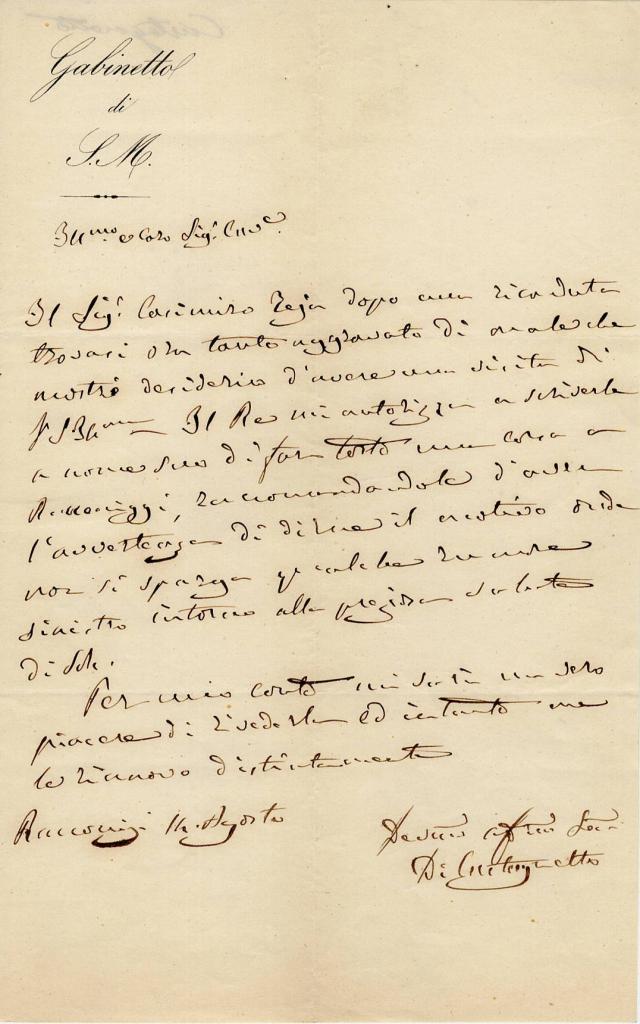 Gabinetto
di
S. M.
Ill.mo e caro Sig.r Cav.e
Il Sig.r Casimiro Teja dopo una ricaduta
trovasi ora tanto aggravato di male che
mostrò desiderio d'avere una visita di
V. S. Ill.ma Il Re mi autorizza a scriverle
a nome suo di far tosto una corsa a
Racconigi, raccomandandole d'aver
l'avvertenza di dirne il motivo onde
non si sparga qualche rumore
sinistro intorno alla preziosa salute
di Sole.
Per mio conto mi sarà un vero
piacere di rivederla ed intanto me
le rinnovo distintamente
Racconigi 14 Agosto
Dev.mo aff.mo
Di Castagnetto